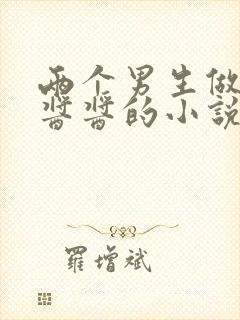 两个男生做
酱酱的小說
羅增斌